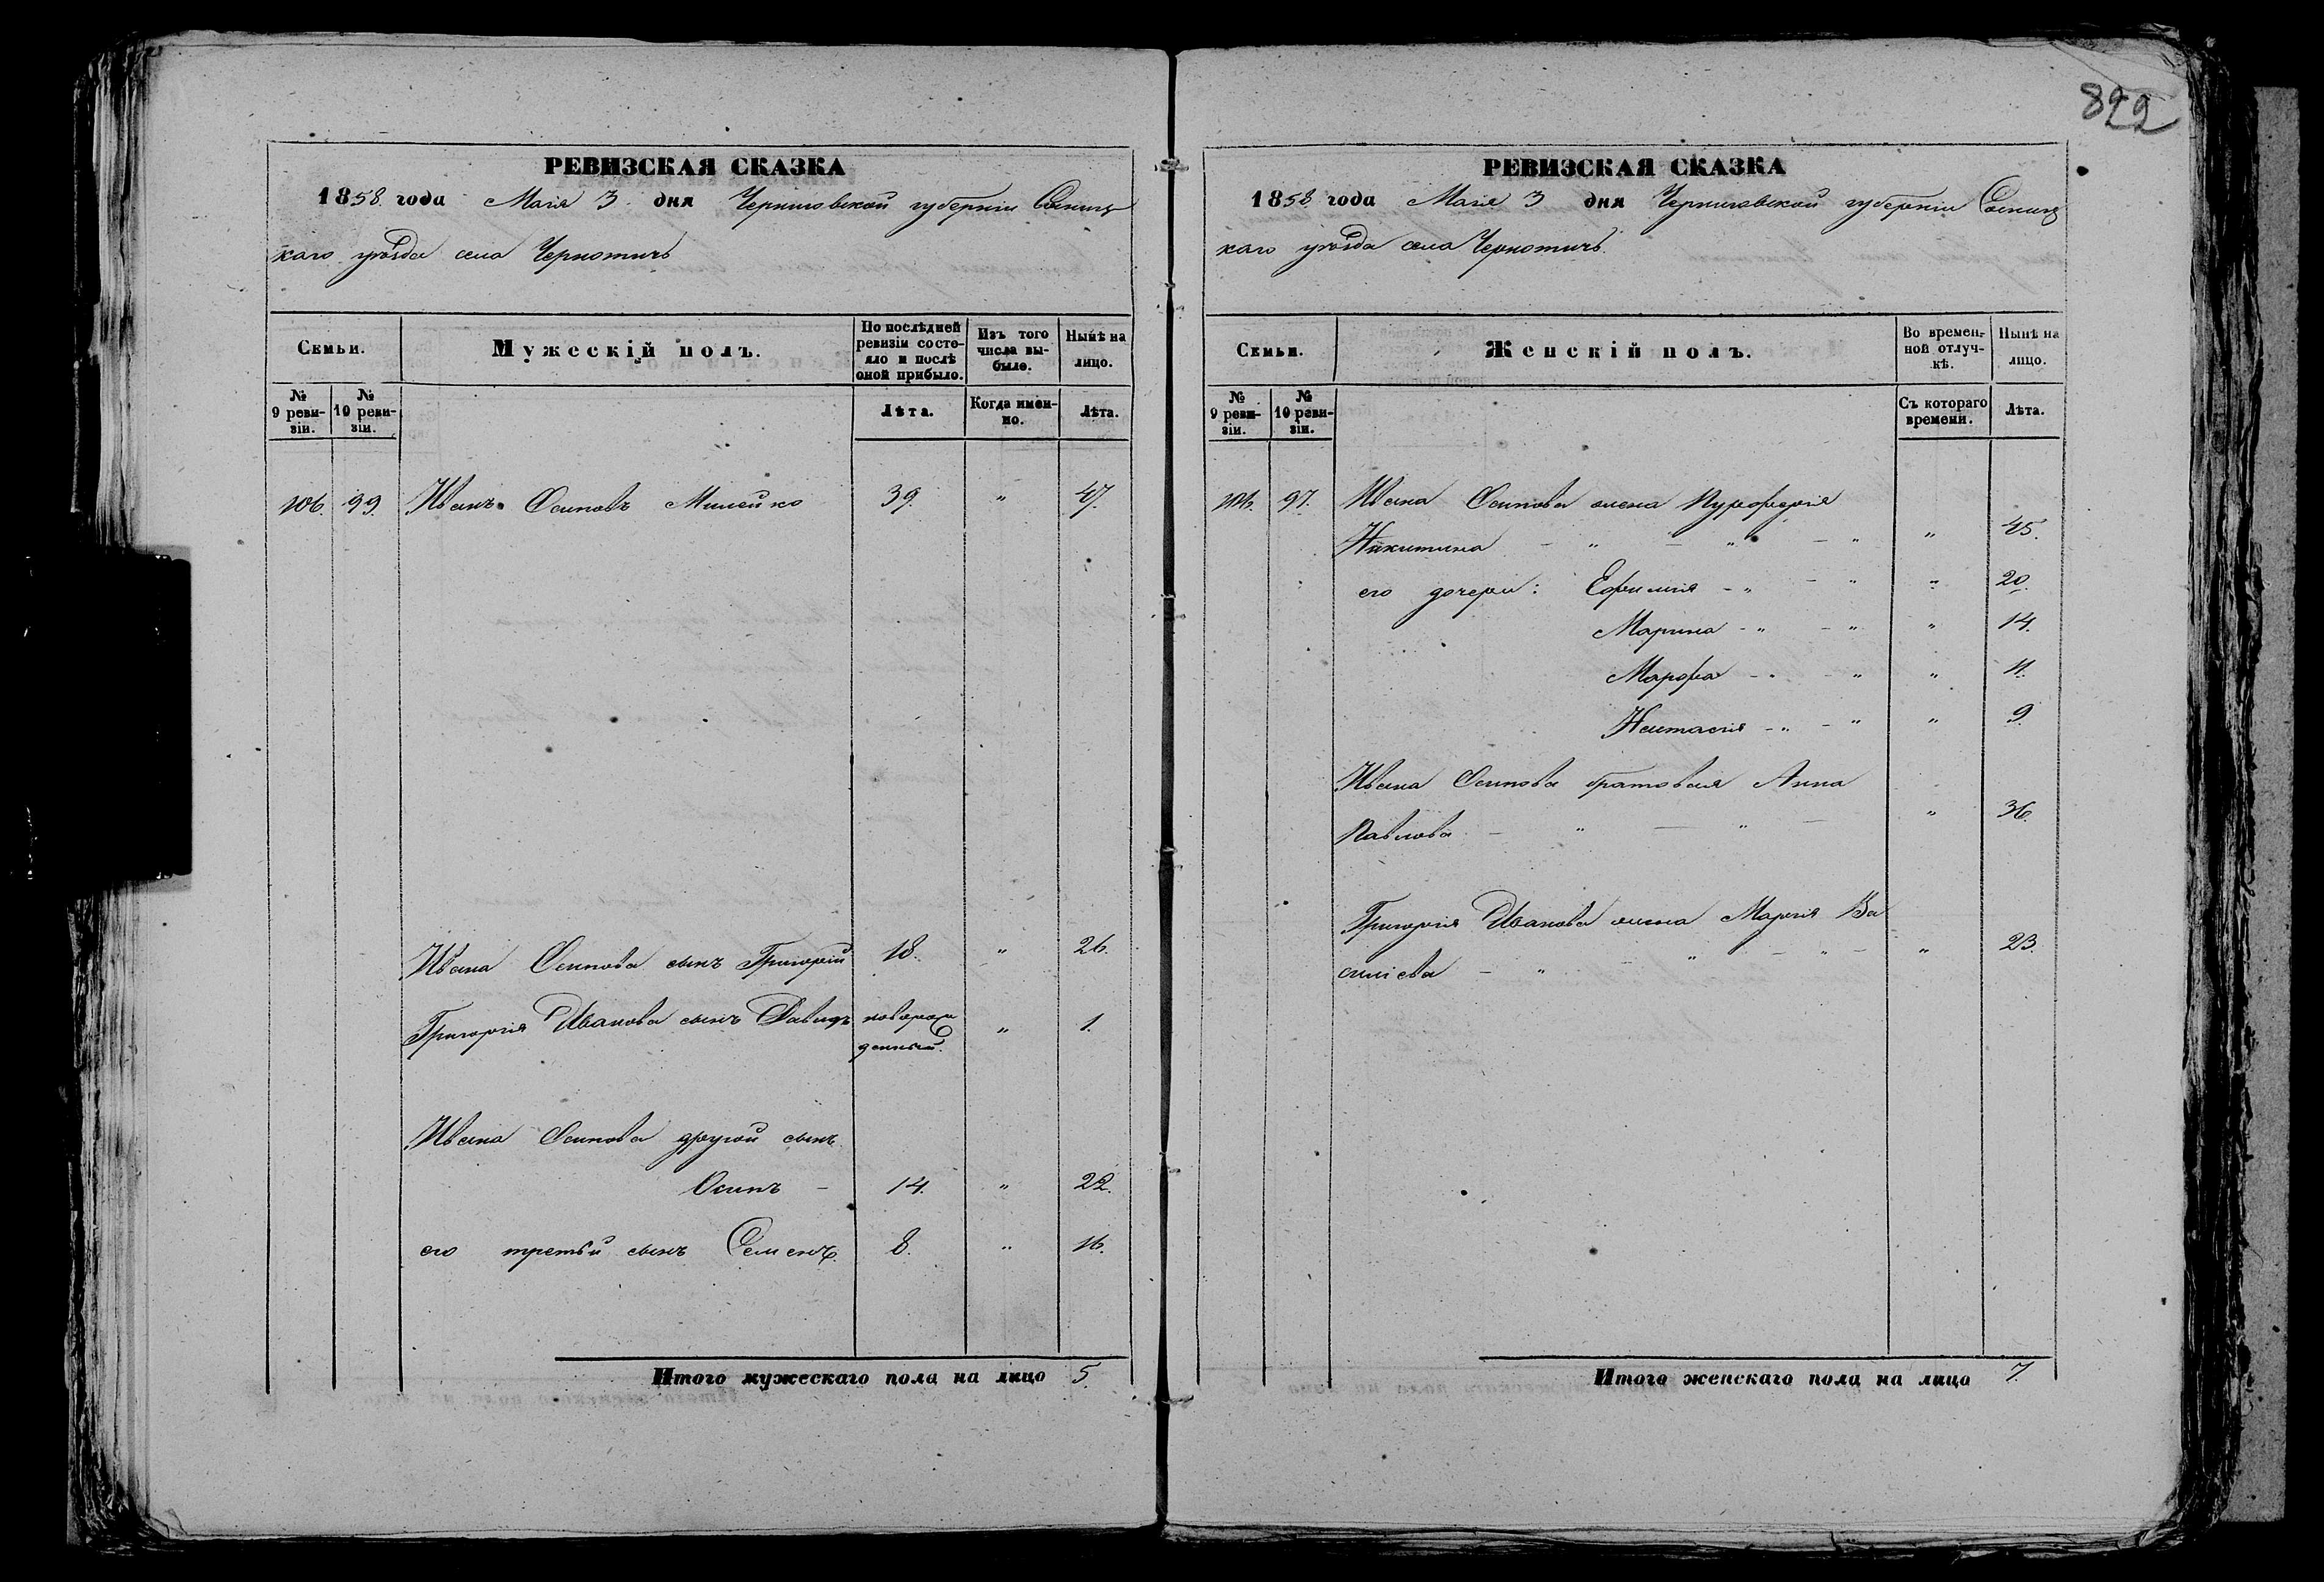 822
РЕВИЗСКАЯ СКАЗКА
1858 года Маія 3 дня Черниговской губерніи Сосниц
каго уѣзда села Чернотичъ
Семьи.
Мужескій полъ.
По послѣдней ревизіи состояло и послѣ оной прибыло.
Изъ того числа выбыло.
Нынѣ на лицо.
№ 9 ревизіи.
№ 10 ревизіи.
Лѣта.
Когда именно.
Лѣта.
106. 99. Иванъ Осиповъ 39. " 47.
Ивана Осипова сынъ Григорій 18. " 26.
Григорія Иванова сынъ Давидъ новорож
денный. " 1.
Ивана Осипова другой сынъ
Осипъ – 14. " 22.
его третьи сынъ Семенъ 8. " 16.
Итого мужескаго пола на лицо 5.
РЕВИЗСКАЯ СКАЗКА
1858 года Маія 3 дня Черниговской губерніи Сосниц
каго уѣзда села Чернотичъ.
Семьи.
Женскій полъ.
Во временной отлучкѣ.
Нынѣ на лицо.
№ 9 ревизіи.
№ 10 ревизіи.
Съ котораго времени.
Лѣта.
106. 97. Ивана Осипова жена
Никитина – " – " – " " 45.
его дочери: Ефимія – " – " " 20.
Марина – " – " " 14.
Марфа – " – " " 11.
Настасія – " – " " 9.
Ивана Осипова братовая Анна
Павлова – " – " – " 36.
Григорія Иванова жена Марія Ва
силіева – " – " – " – " 23.
Итого женскаго пола на лицо 7.